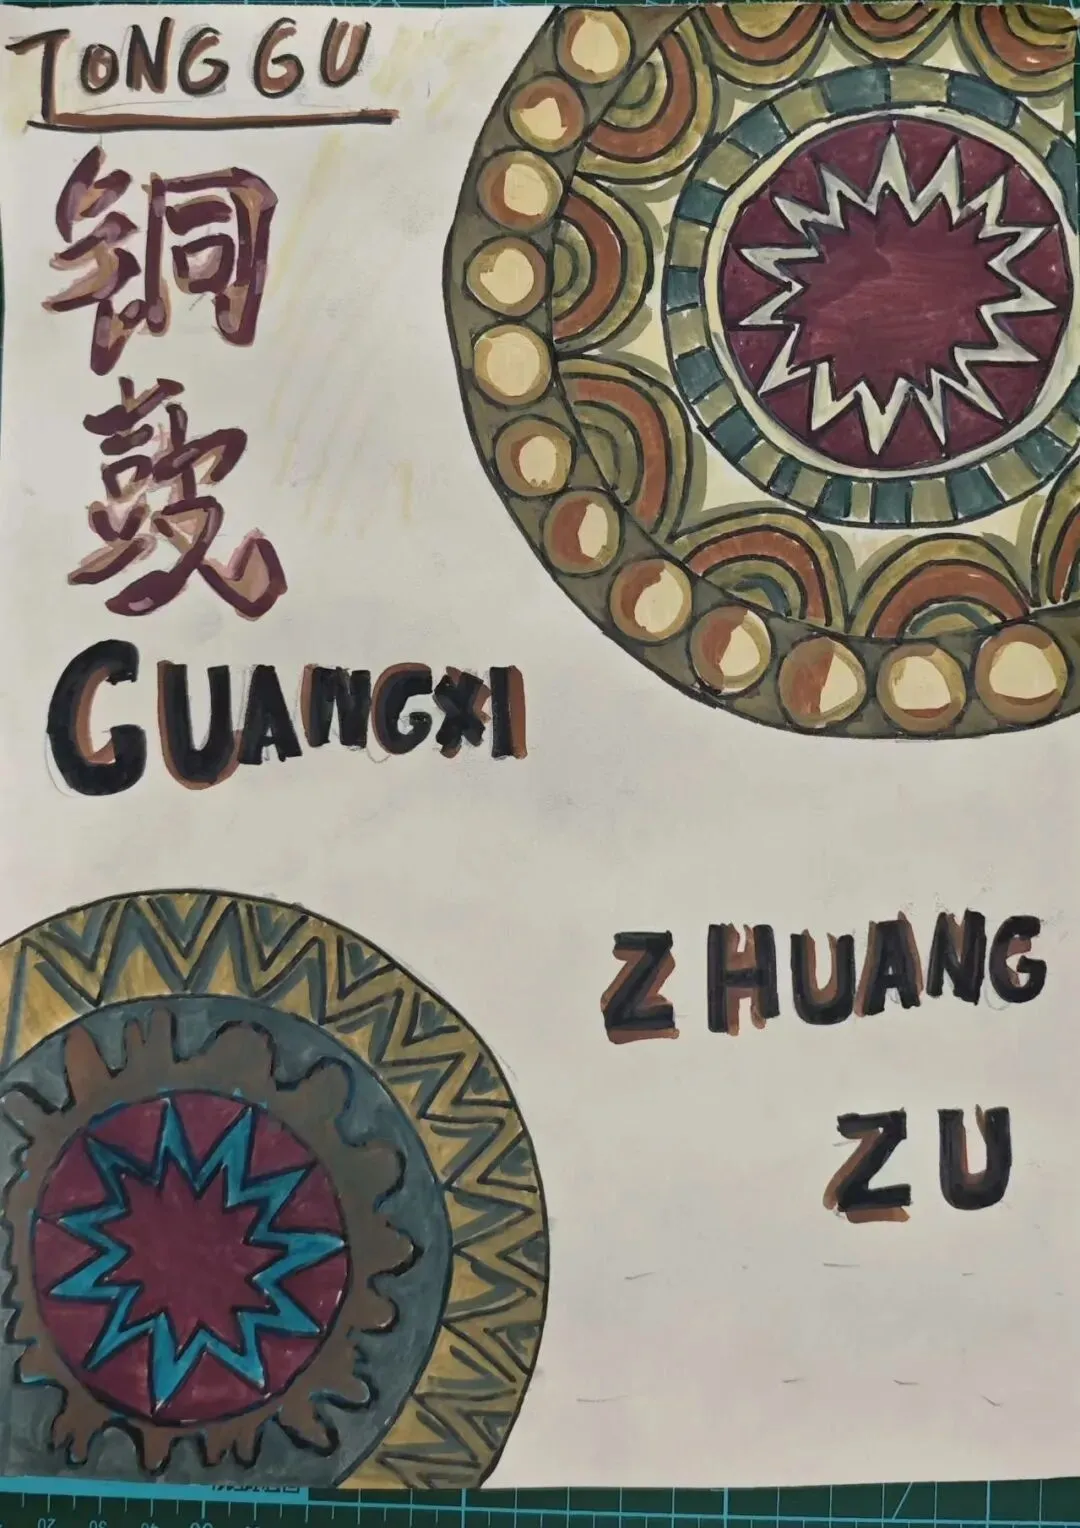 TONG GU
铜
鼓
GUANGXI
ZHUANG
ZU